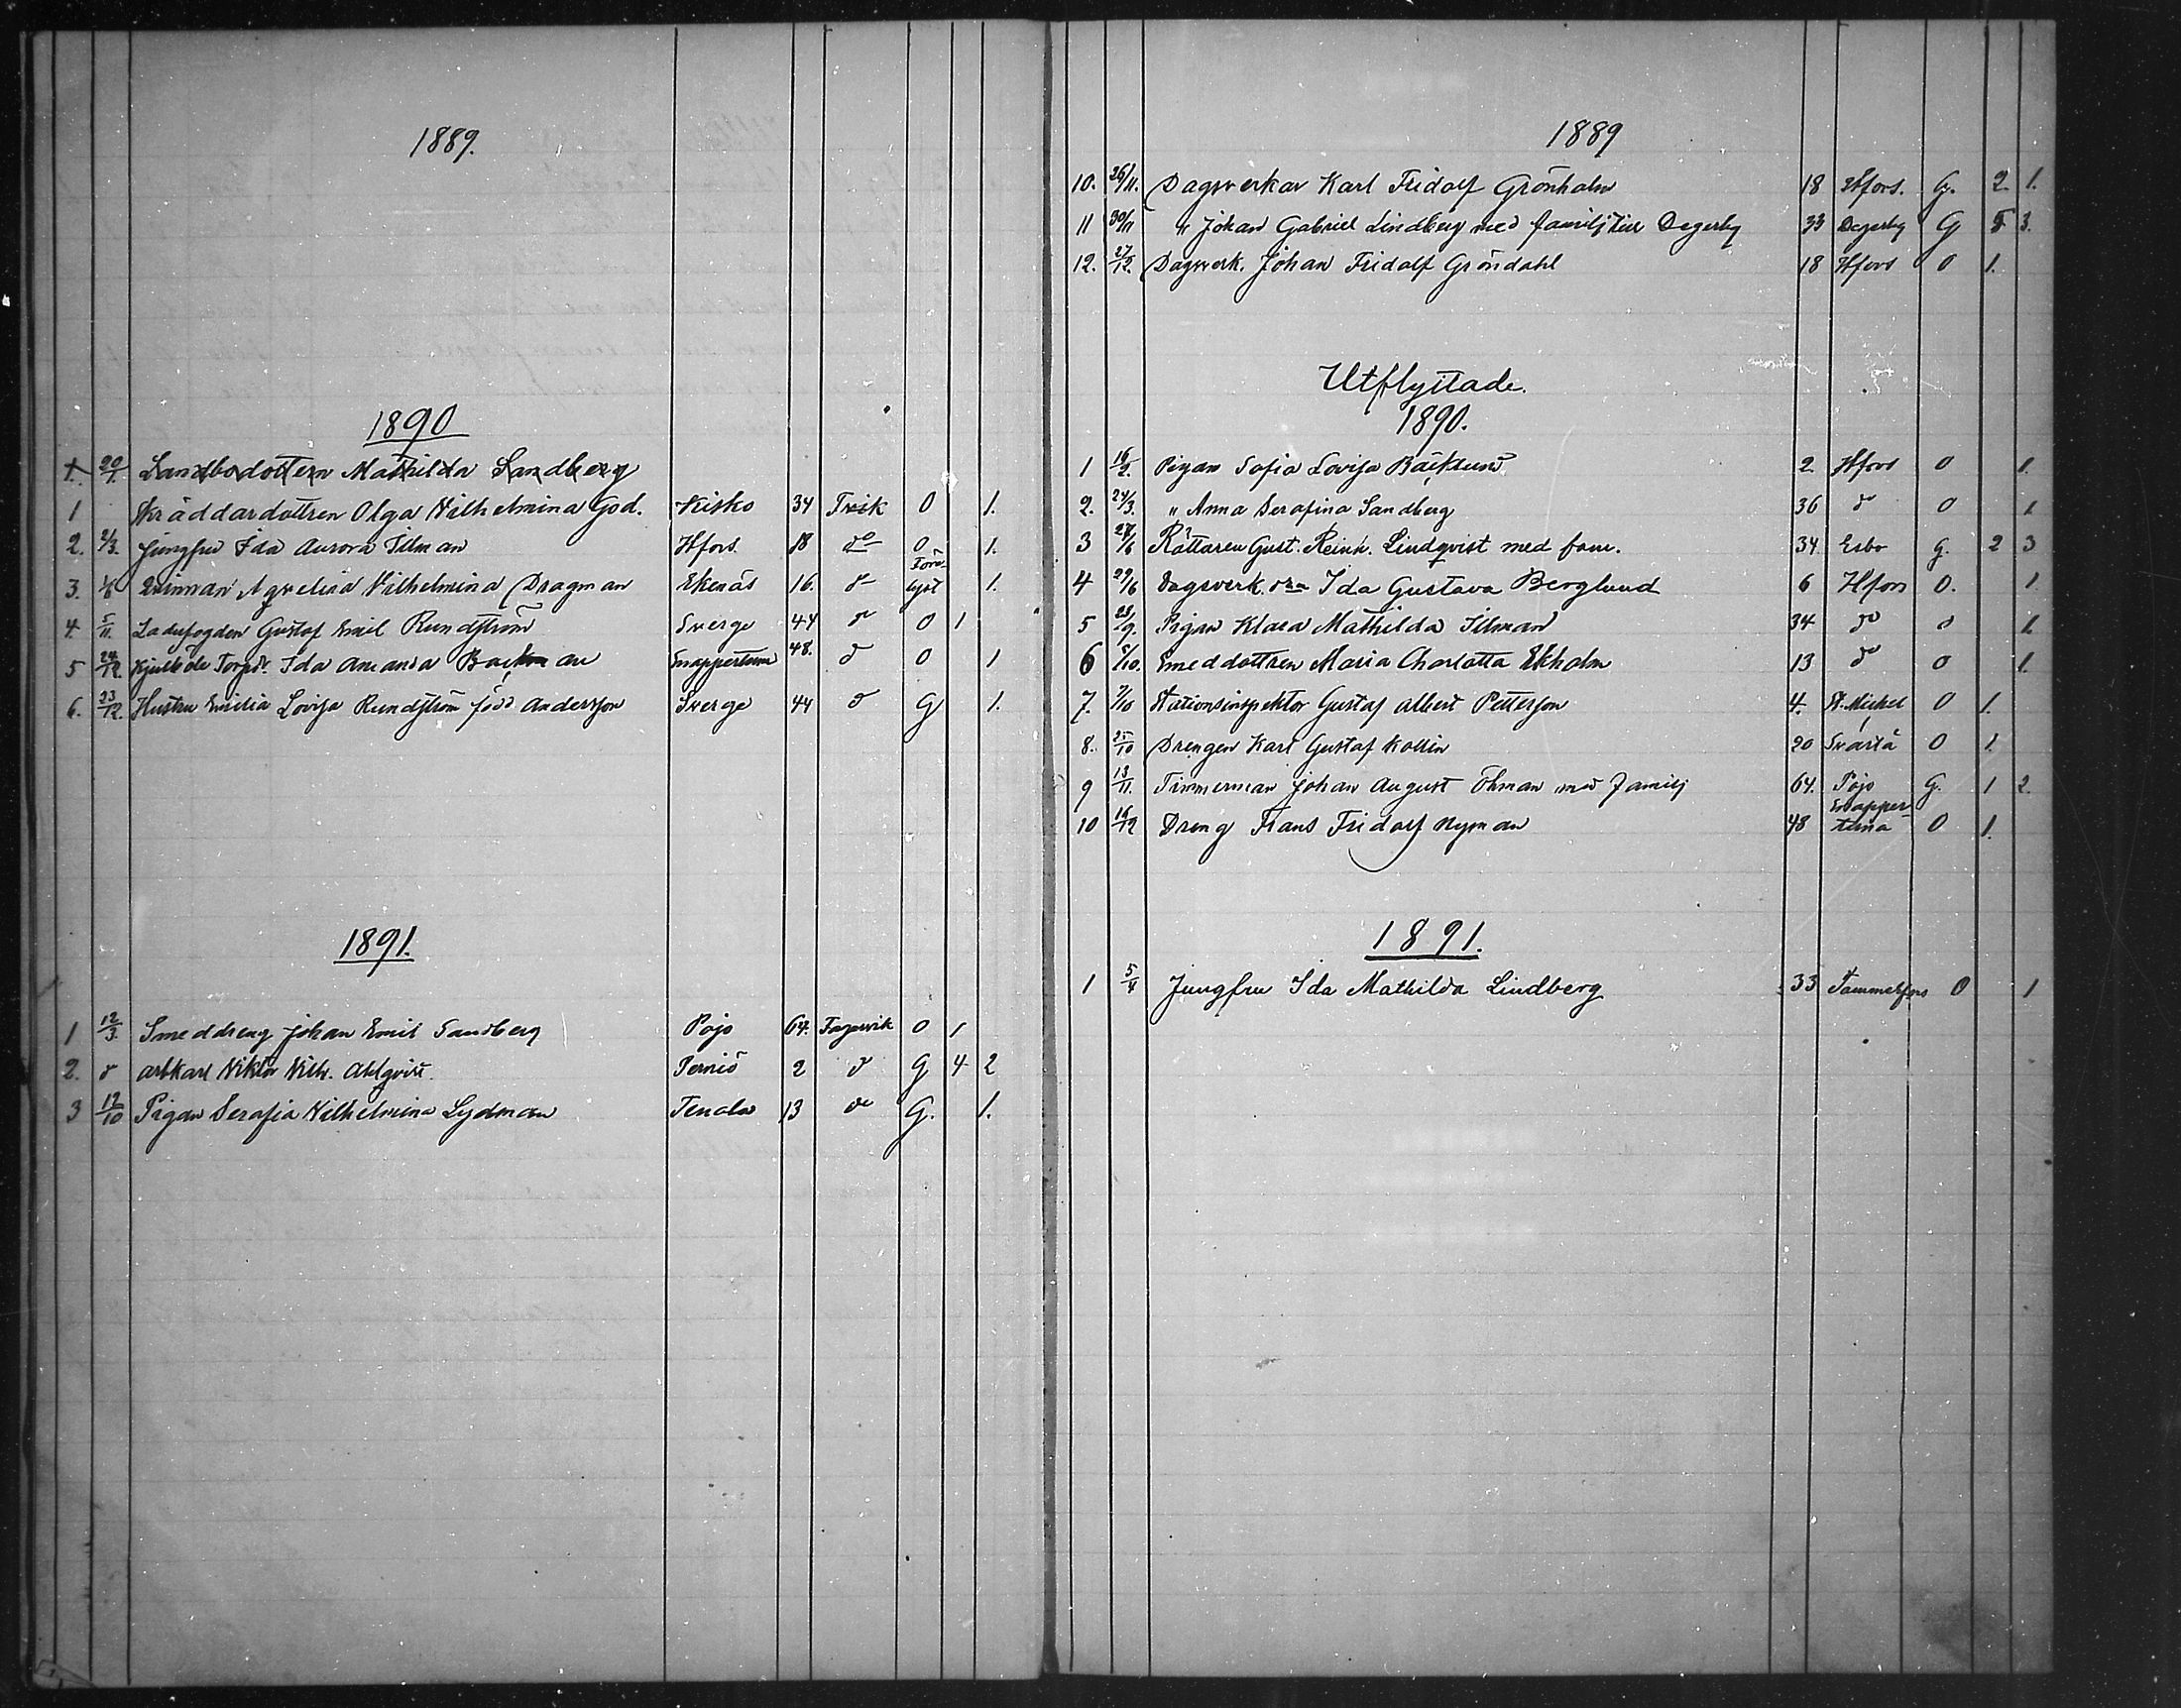 1889.
1890
1. 20/1 Landbodottern Mathilda Sandberg
1 Skräddardottren Olga Wilhelmina God. Kisko 34 Fvik O 1.
2. 2/3. Jungfru Ida Aurora Silman Hfors 18 do O 1.
3. 1/6 Qvinnan Aqvelina Vilhelmina Dragman Ekenäs 16. d 1.
4 5/11. Ladufogden Gustaf Emil Rundström Sverge 44 do O 1
5 24/12. Torpdr. Ida Amanda Backman Snappertuna 48. d O 1
6. 23/12. Hustru Emilia Lovisa Rundström född Andersson Sverge 44 d G 1.
1891.
1 12/3. Smeddreng Johan Emil Sandberg Pojo 64. Fagervik O 1
2. d arbkarl Viktor Vilh. Ahlqvist Perniö 2 d G 4 2
3 12/10 Pigan Serafia Wilhelmina Lydman Tenala 13 do G. 1.
1889
10. 26/11. Dagsverkar Karl Fridolf Grönholm 18 Hfors. G. 2. 1.
11 30/11 " Johan Gabriel Lindberg med familj till Degerby 33 Degerby G 5 3.
12. 27/12. Dagsverk. Johan Fridolf Gröndahl 18 Hfors O 1.
Utflyttade.
1890.
1 16/2. Pigan Sofia Lovisa Bäcklund 2. Hfors O 1.
2. 24/3. " Anna Serafina Sandberg 36 d O 1
3 27/6 Rättaren Gust. Reinh. Lindqvist med fam. 34 Esbo G. 2 3
4 29/6 Dagsverk. Ida Gustava Berglund 6 Hfors O. 1
5 28/9. Pigan Klara Mathilda Silman 34 do o 1
6 5/10. Smeddottren Maria Charlotta Ekholm 13 do O 1.
7. 7/10 Stationsinspektor Gustaf Albert Pettersson 4. St. Michel O 1.
8. 25/10 Drengen Karl Gustaf Kollin 20 Svartå O 1.
9 13/11. Timmerman Johan August Öhman med familj 64. Pojo G. 1 2.
10 16/12 Dreng Frans Fridolf Nyman 48 Snappertuna O 1.
1891.
1 5/4 Jungfru Ida Mathilda Lindberg 33 Tammerfors O 1